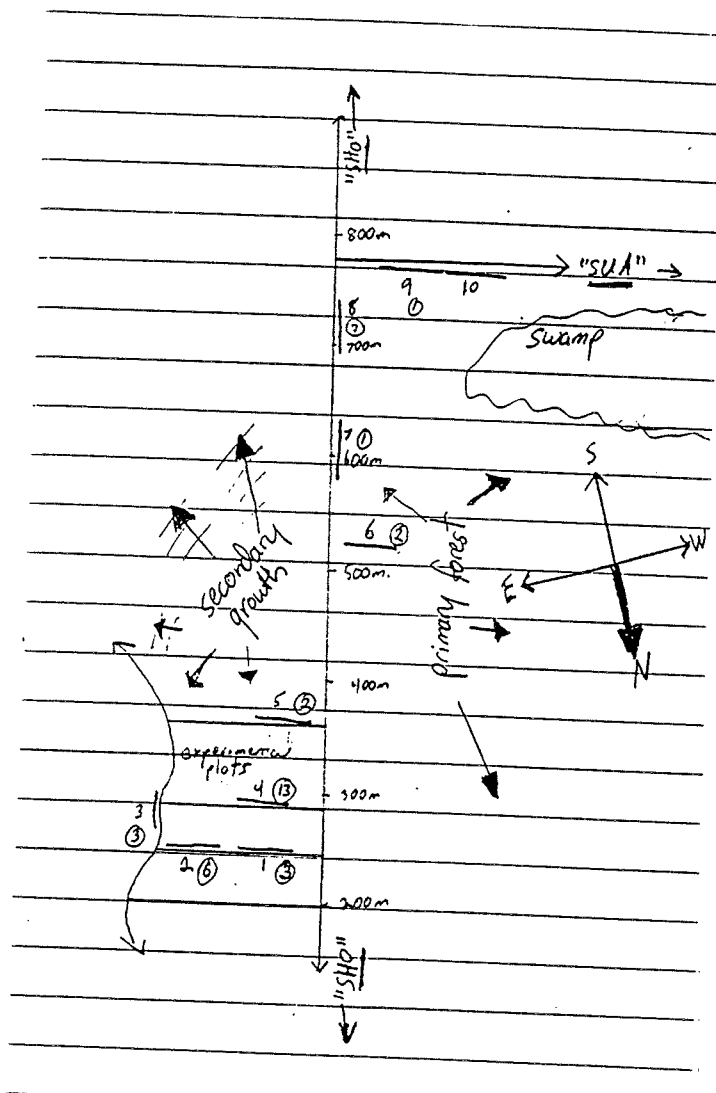 "SHO"
800m
"SUA"
9 10
①
8
②
700m
swamp
7 ①
600m
S
6 ②
W
500m.
secondary
growth
primary forest
E
N
400m
5 ②
experimental
plots
4 ⑬
300m
3
③
2 ⑥ 1 ③
200m
"SHO"